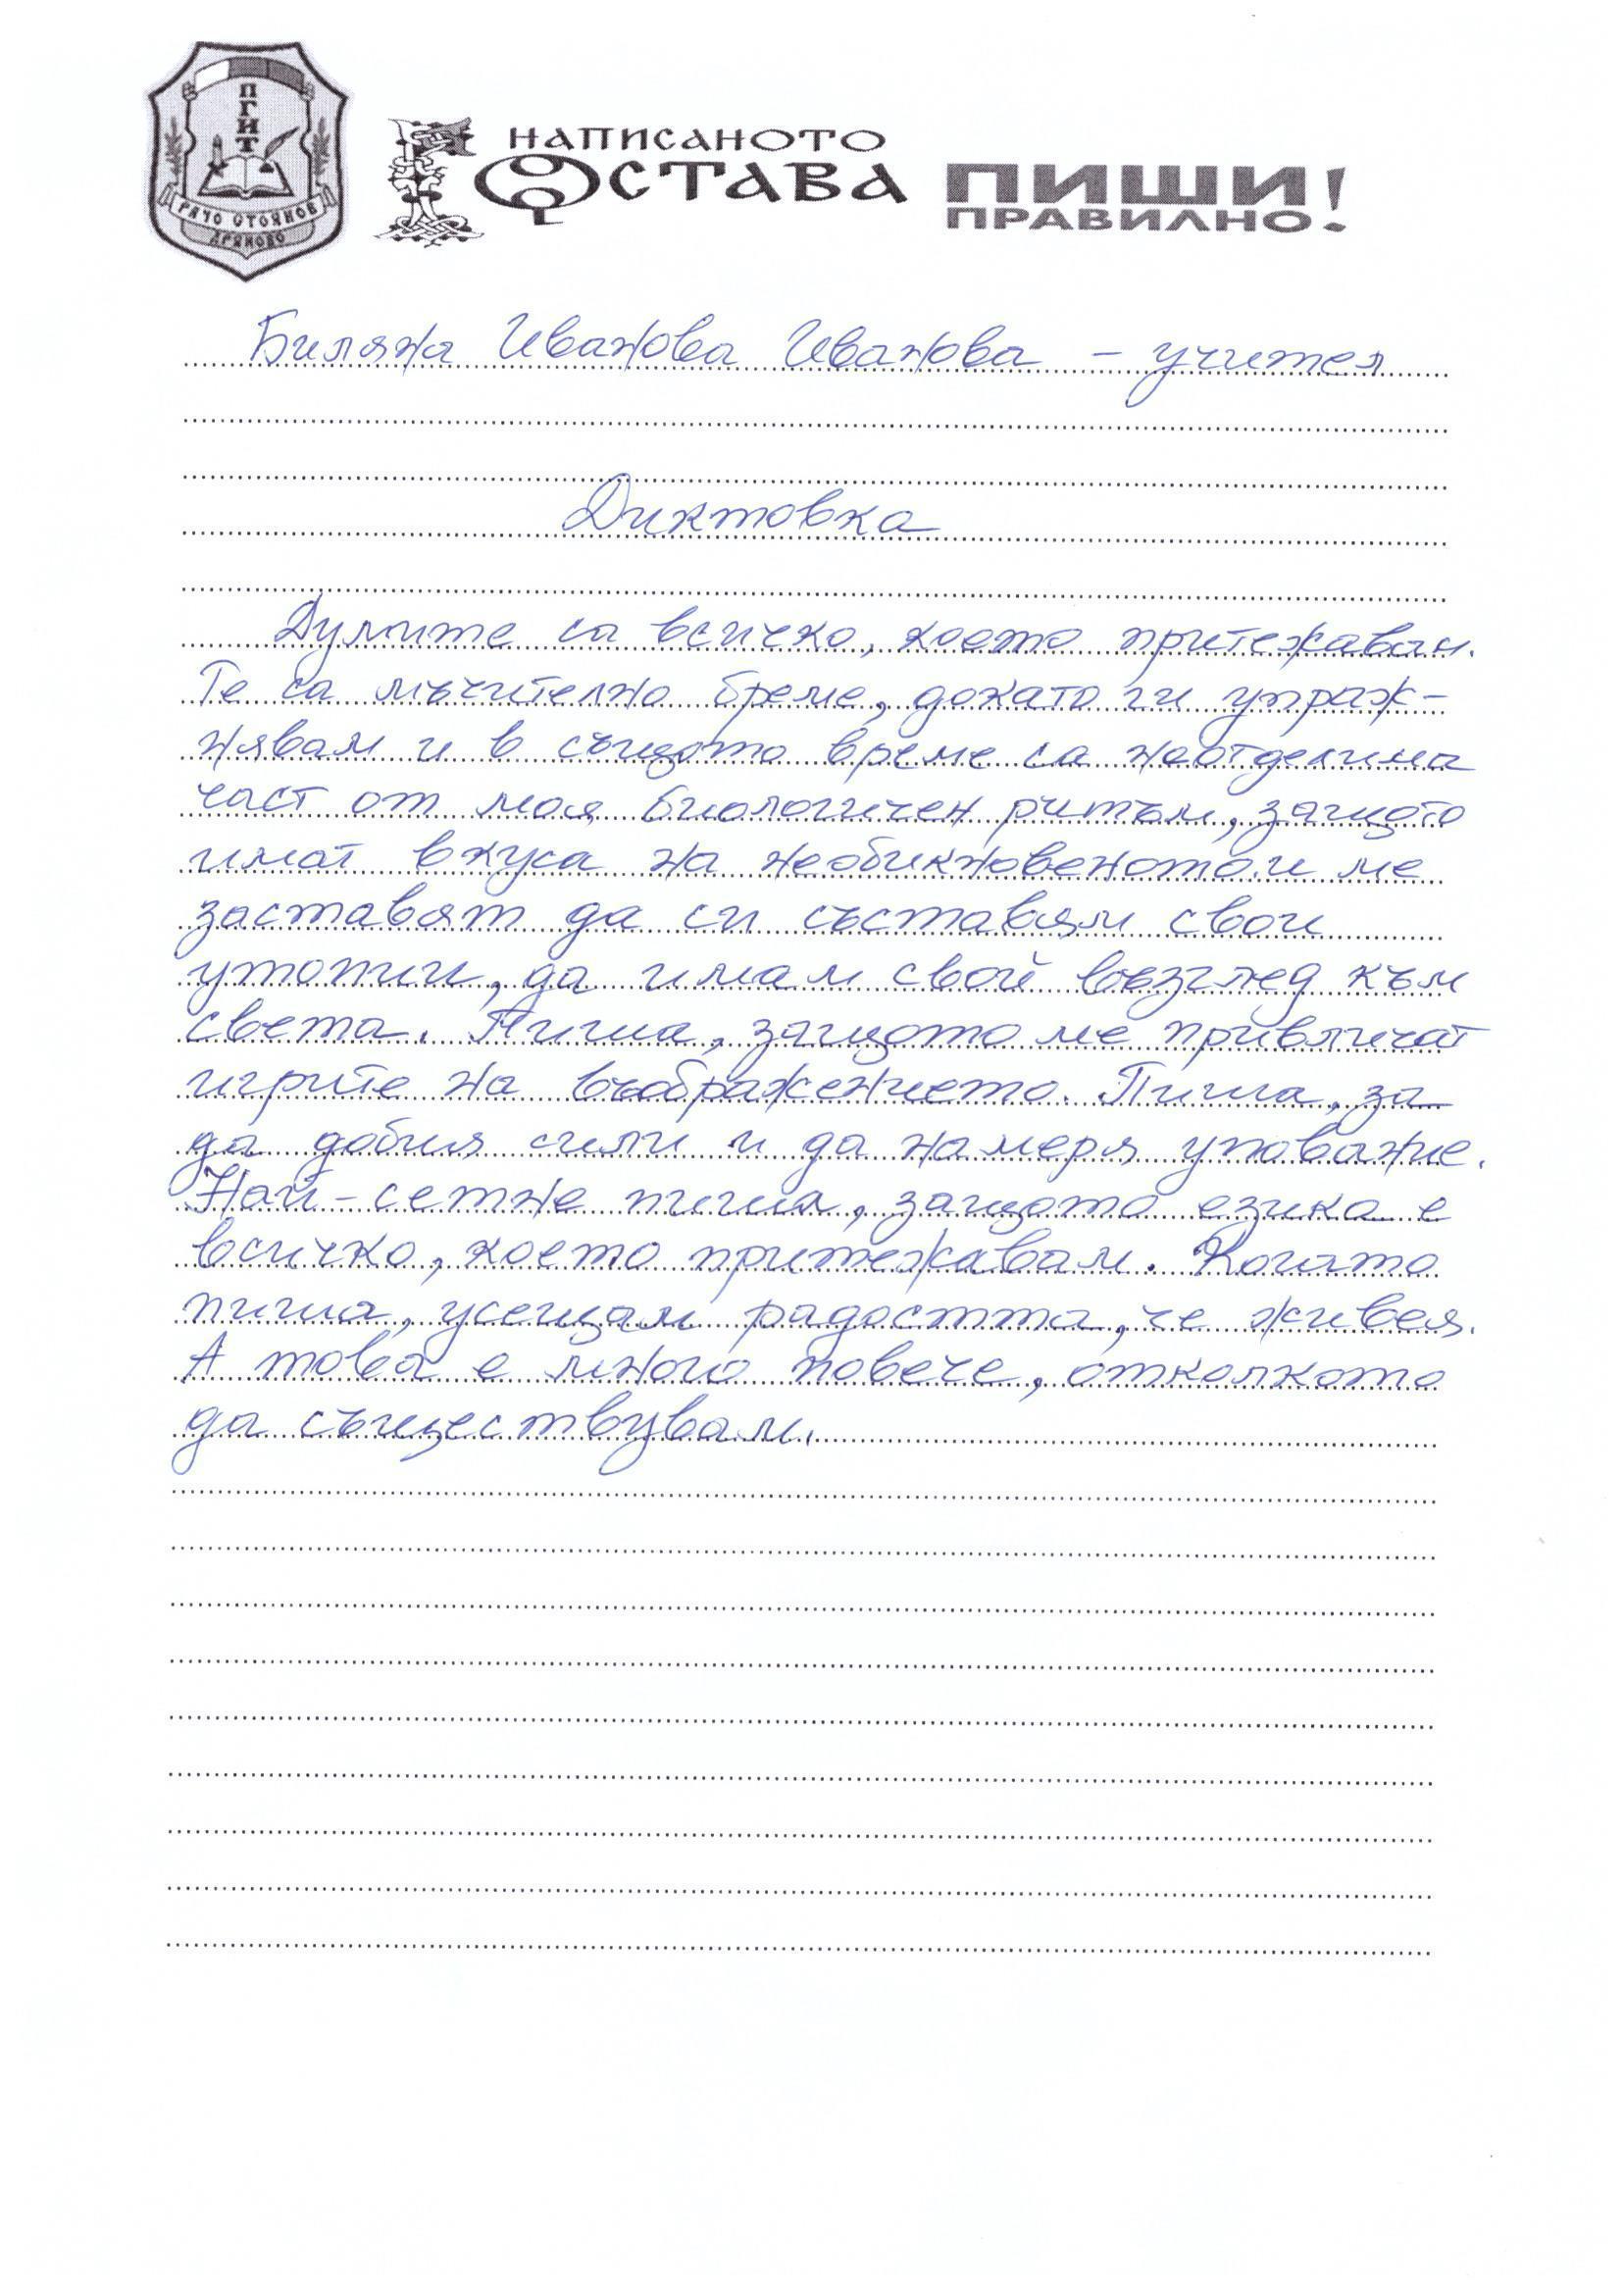 ПГИТ
РАЧО СТОЯНОВ
ДРЯНОВО
НАПИСАНОТО
ОСТАВА
ПИШИ!
ПРАВИЛНО!
Биляна Иванова Иванова – учител
Диктовка
Думите са всичко, което притежавам.
Те са мъчително бреме, докато ги упраж-
нявам и в същото време са неотделима
част от моя биологичен ритъм, защото
имат вкуса на необикновеното и ме
заставят да си съставям свои
утопии, да имам свой възглед към
света. Пиша, защото ме привличат
игрите на въображението. Пиша, за
да добия сили и да намеря упование.
Най-сетне пиша, защото езика е
всичко, което притежавам. Когато
пиша, усещам радостта, че живея.
А това е много повече, отколкото
да съществувам.